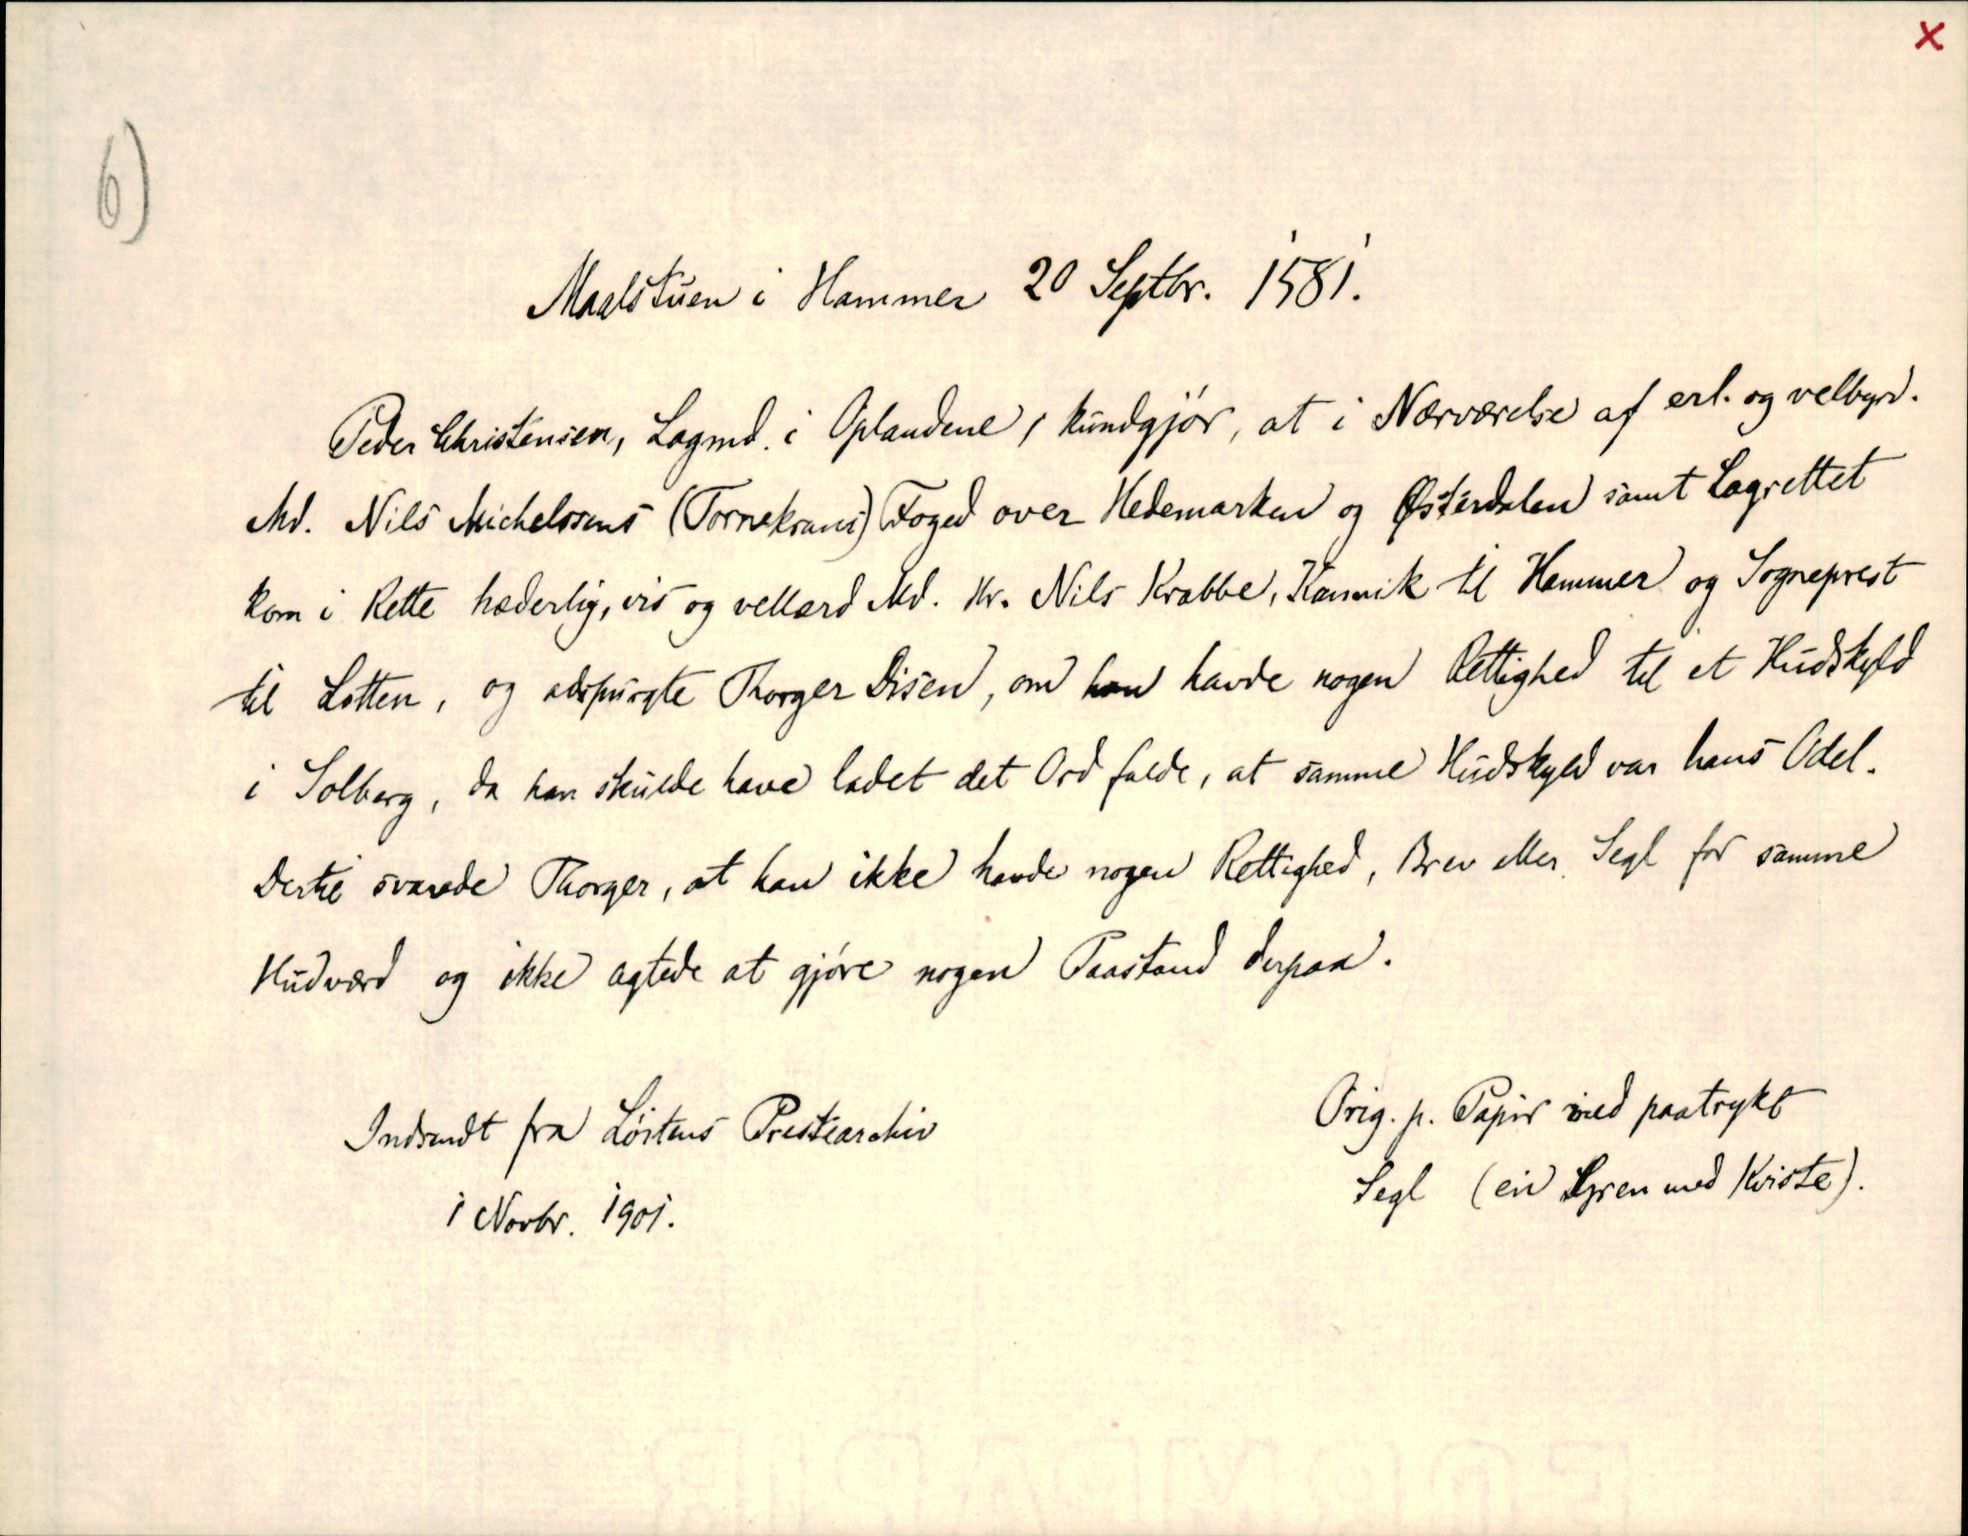 x
6)
Maalstuen i Hammer 20 Septbr. 1581.
Peder Christensen, Lagmd. i Oplandene, kundgjør, at i Nærværelse af erl. og velbyrd.
Md. Nils Michelssens (Tornekrans) Foged over Hedemarken og Østerdalen samt Lagrettet
kom i Rette hæderlig, vis og vellærd Md. Hr. Nils Krabbe, Kannik til Hammer og Sogneprest
til Løtten, og adspurgte Thorger Disen, om han havde nogen Rettighed til et Hudskyld
i Solberg, da han skulde have ladet det Ord falde, at samme Hudskyld var hans Odel.
Dertil svarede Thorger, at han ikke havde nogen Rettighed, Brev eller Segl for samme
Hudværd og ikke agtede at gjøre nogen Paastand derpaa.
Indsendt fra Løitens Prestearchiv
i Novbr. 1901.
Orig. p. Papir med paatrykt
Segl (en Gren med Kviste).